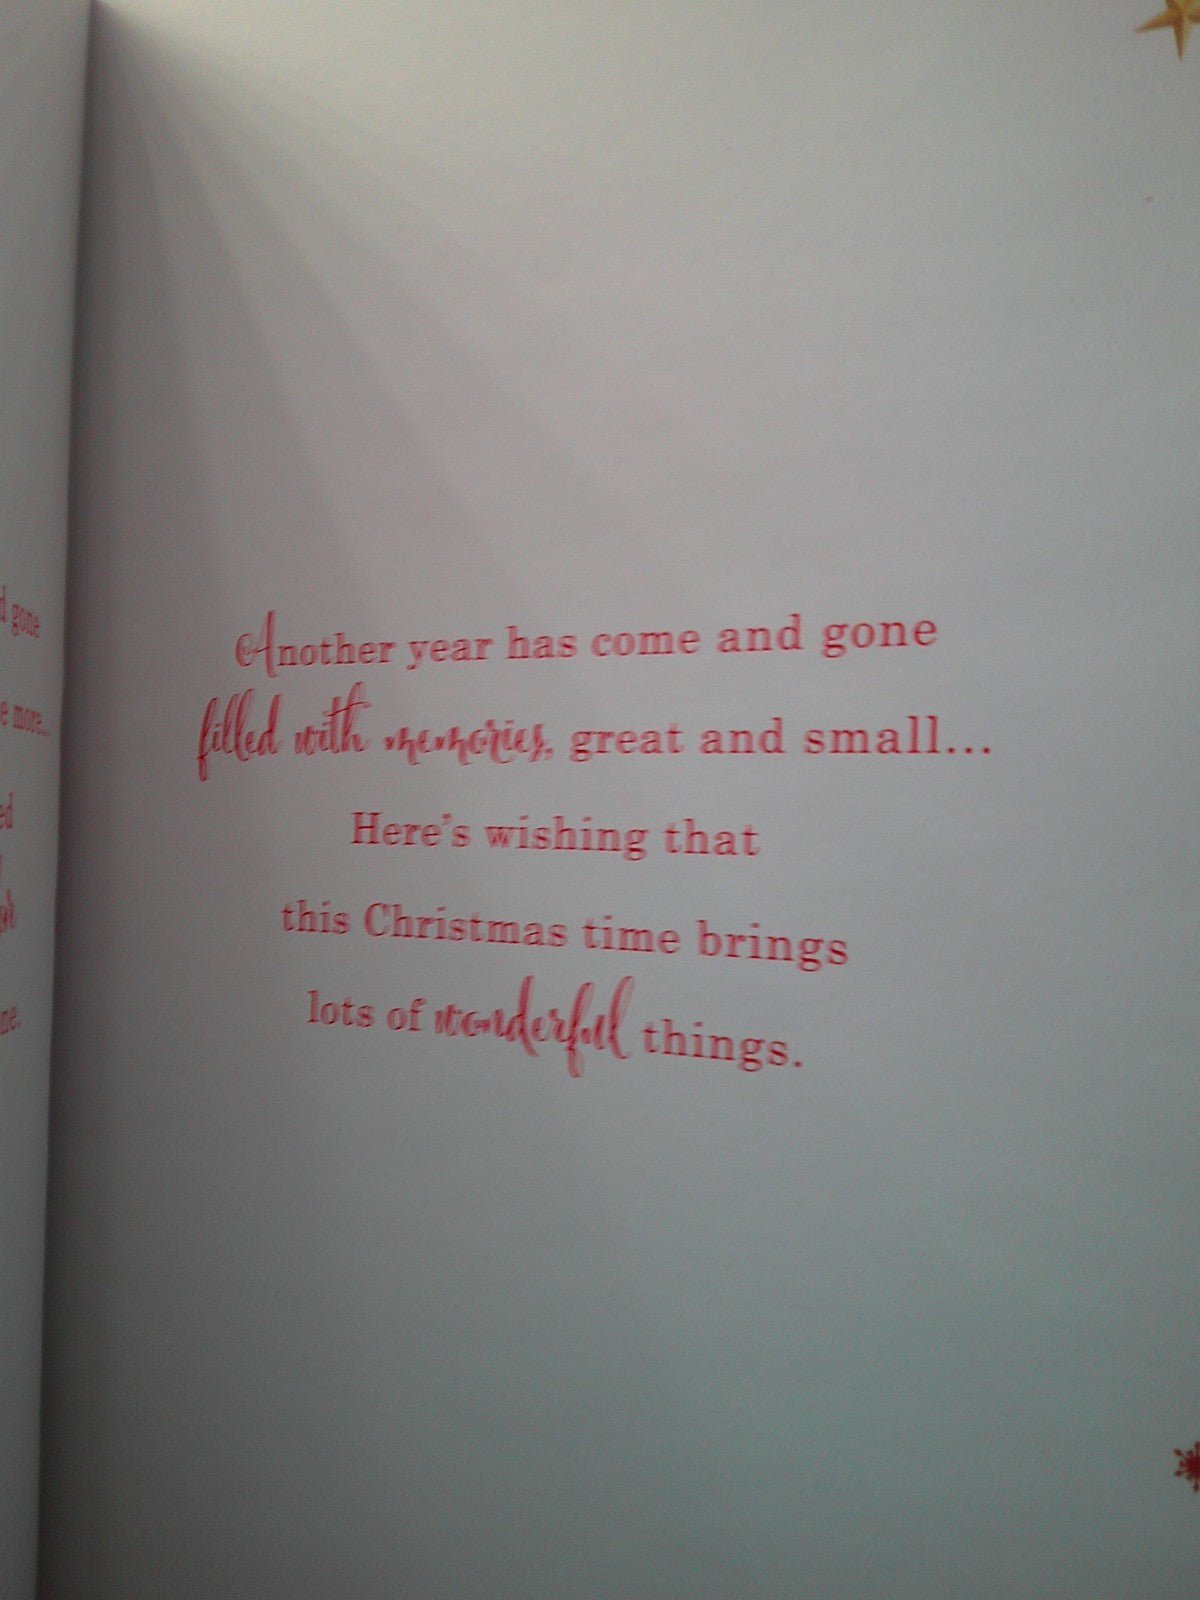 d gone
e more...
ed
ne.
Another year has come and gone
filled with memories, great and small...
Here's wishing that
this Christmas time brings
lots of wonderful things.